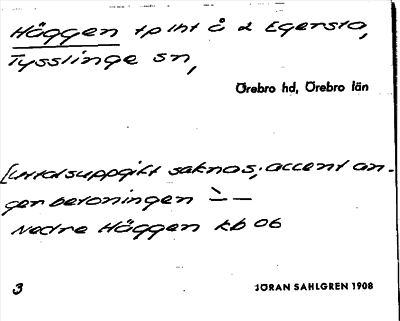 Häggen tp lht å d Egersta,
Tysslinge sn,
Örebro hd, Örebro län
[Uttalsuppgift saknas; accent an-
ger betoningen
Nedre Häggen kb 06
3
JÖRAN SAHLGREN 1908